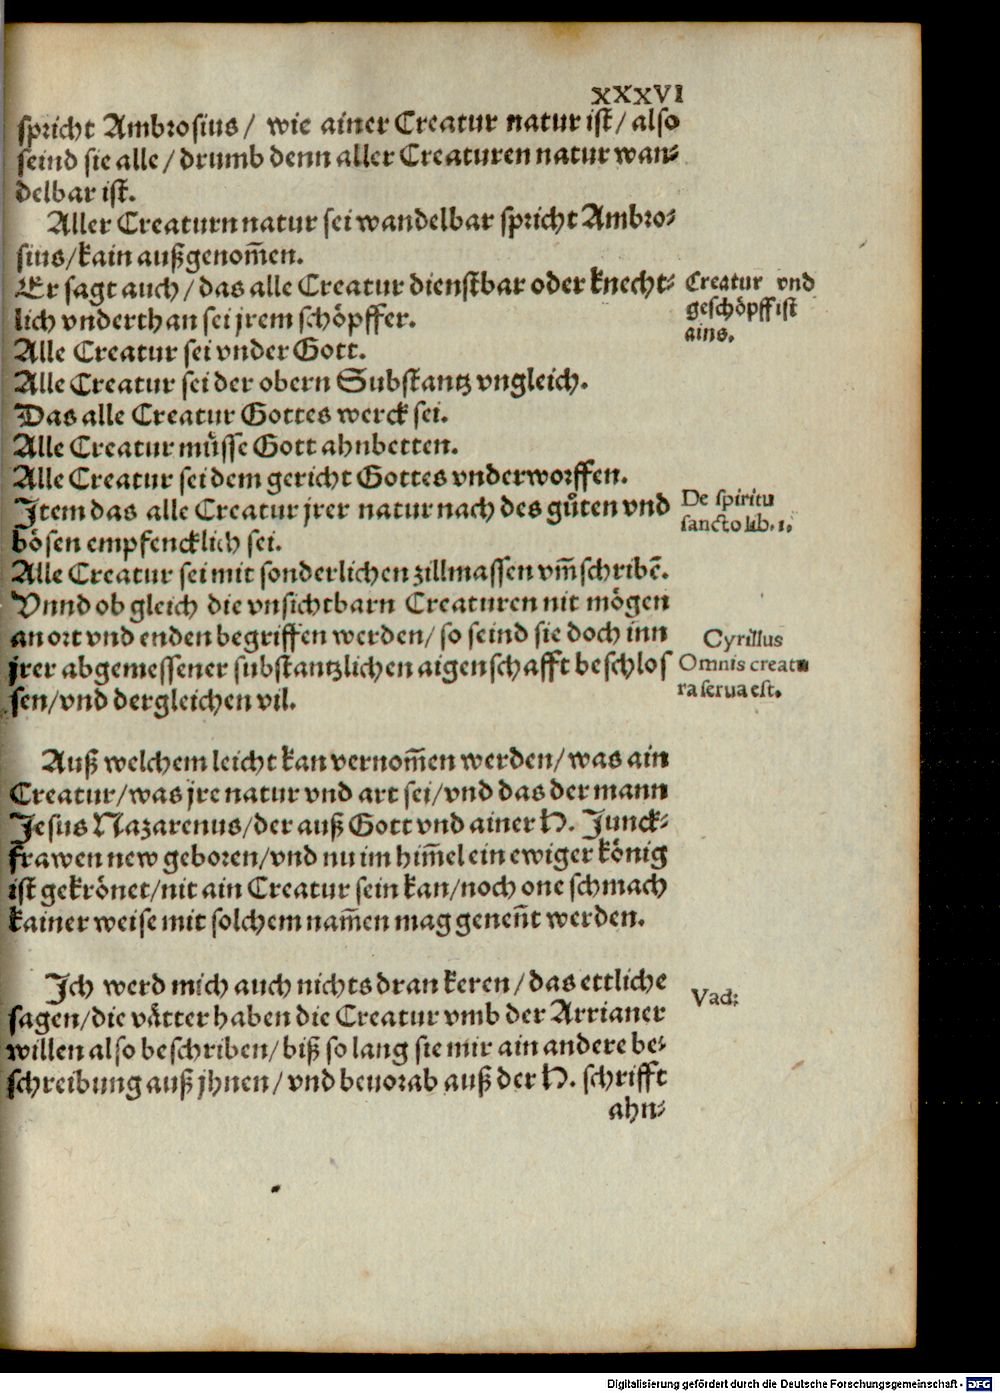 XXXVI
spricht Ambrosius/ wie ainer Creatur natur ist/ also
seind sie alle/ drumb denn aller Creaturen natur wan⸗
delbar ist.
Aller Creaturn natur sei wandelbar spricht Ambro⸗
sius/kain außgenom̄en.
Er sagt auch/ das alle Creatur dienstbar oder knecht⸗
lich vnderthan sei jrem schöpffer.
Creatur vnd
geschöpff ist
ains.
Alle Creatur sei vnder Gott.
Alle Creatur sei der obern Substantz vngleich.
Das alle Creatur Gottes werck sei.
Alle Creatur müsse Gott ahnbetten.
Alle Creatur sei dem gericht Gottes vnderworffen.
Item das alle Creatur jrer natur nach des gůten vnd
bösen empfencklich sei.
De spiritu
sancto lib. 1.
Alle Creatur sei mit sonderlichen zillmassen vm̄schribē.
Vnnd ob gleich die vnsichtbarn Creaturen nit mögen
an ort vnd enden begriffen werden/ so seind sie doch inn
jrer abgemessener substantzlichen aigenschafft beschlos
sen/vnd dergleichen vil.
Cyrillus
Omnis creatu
ra serua est.
Auß welchem leicht kan vernom̄en werden/ was ain
Creatur/was jre natur vnd art sei/vnd das der mann
Jesus Nazarenus/der auß Gott vnd ainer H. Junck⸗
frawen new geboren/vnd nu im him̄el ein ewiger könig
ist gekrönet/nit ain Creatur sein kan/noch one schmach
kainer weise mit solchem nam̄en mag genen̄t werden.
Ich werd mich auch nichts dran keren/ das ettliche
sagen/die vätter haben die Creatur vmb der Arrianer
willen also beschriben/ biß so lang sie mir ain andere be⸗
schreibung auß jhnen/ vnd beuorab auß der H. schrifft
Vad:
ahn⸗
Digitalisierung gefördert durch die Deutsche Forschungsgemeinschaft - DFG